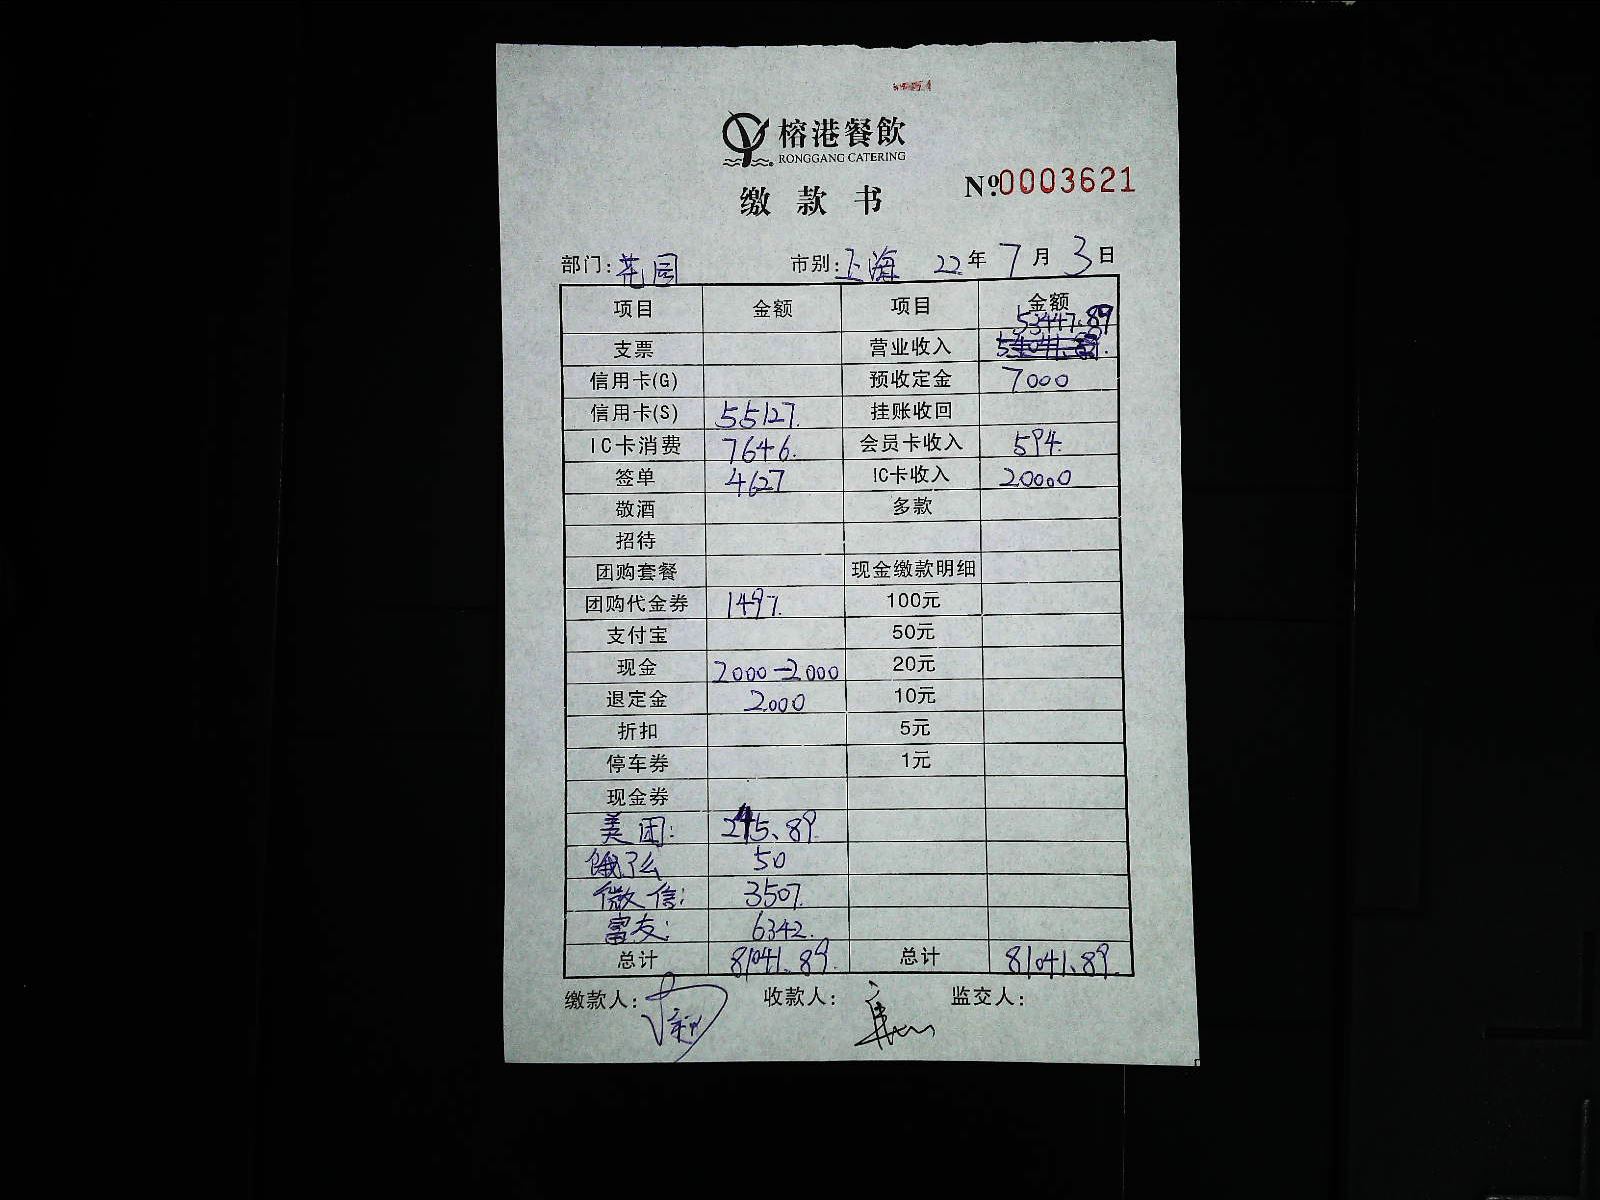 榕港餐飲
RONGGANG CATERING
缴款书
Nº 0003621
部门:花园 市别:上海 22年7月3日
项目 金额 项目 金额
支票 营业收入 53447.89
信用卡(G) 预收定金 7000
信用卡(S) 55127. 挂账收回
IC卡消费 7646. 会员卡收入 594.
签单 4627 IC卡收入 20000
敬酒 多款
招待
团购套餐 现金缴款明细
团购代金券 1497. 100元
支付宝 50元
现金 2000-2000 20元
退定金 2000 10元
折扣 5元
停车券 1元
现金券
美团: 245.89.
饿了么 50
微信: 3507.
富友: 6342.
总计 81041.89. 总计 81041.89.
缴款人: 收款人: 监交人: